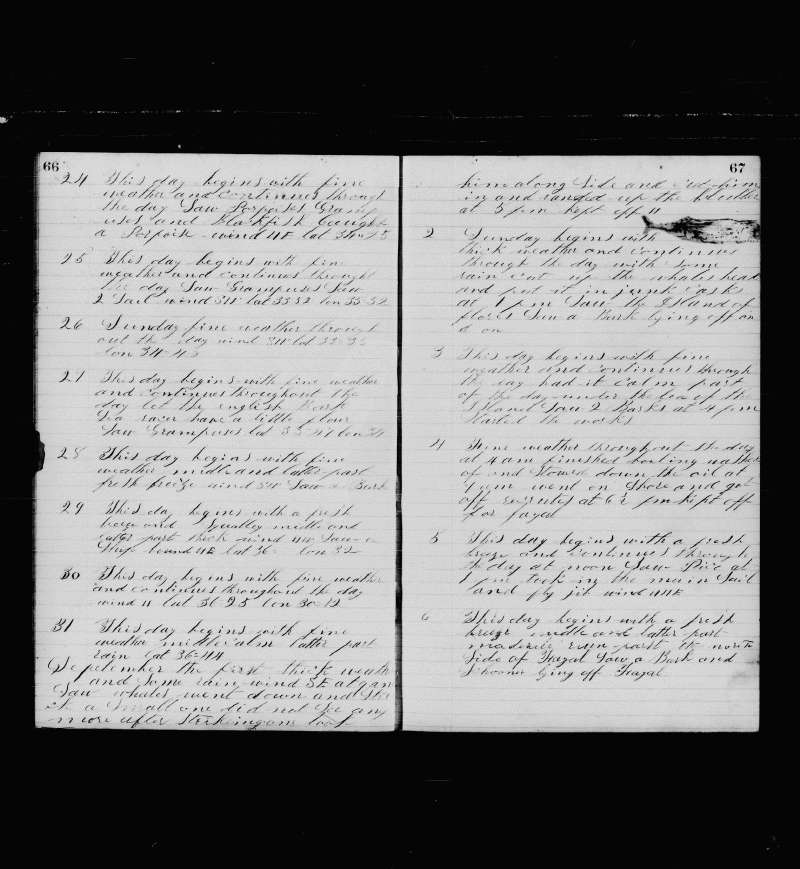 66
24 This day begins with fine
weather and continues through
the day Saw Porpoises Gramp
uses and Blackfish Caught
a Porpoise wind NE lat 34
25 This day begins with fine
weather and continues throught
the day Saw Grampuses Saw
2 Sail wind SW lat 33 32 lon 35 52
26 Sunday fine weather through
out the day wind SW lat 33
lon 34
27 This day begins with fine weather
and continues throughout the
day let the english Bark
Sea have a little flour
Saw Grampuses lat 35 lon 34
28 This day begins with fine
weather midle and latter part
fresh breeze wind SW Saw a Bark
29 This day begins with a fresh
breeze and Squalley midle and
later part thick wind Saw a
Ship bound NE lat 36 lon 32
30 This day begins with fine weather
and continues throughout the day
wind N lat 36 25 lon 30-12
31 This day begins with fine
weather midle calm latter part
rain lat 36-44
September the first thick weath
and Some rain wind SE at 9 am
Saw whales went down and
a Small one did not See any
more after Strikeing one took
67
him along Side and Cut him
in and randed up the blubber
at 5 pm kept off
2 Sunday begins with
thick weather and continues
through the day with some
rain Cut up the whales head
and put it in junk Casks
at 1 pm Saw the Island of
flores Saw a Bark lying off an
d on
3 This day begins with fine
weather and continues through
the day had it Calm part
of the day under the lea of the
Island Saw 2 Barks at 4 pm
Started the works
4 Fine weather throughout the day
at 4 am finished boiling
and Stowed down the oil at
am went on Shore and got
off at 6½ pm kept off
for fayal
5 This day begins with a fresh
breeze and continues through
the day at noon Saw Pico at
1 pm took in the main Sail
and fly jib wind NNE
6 This day begins with a fresh
breeze midle and latter part
moderate run past the north
Side of Fayal Saw a Bark and
Schooner lying off Fayal